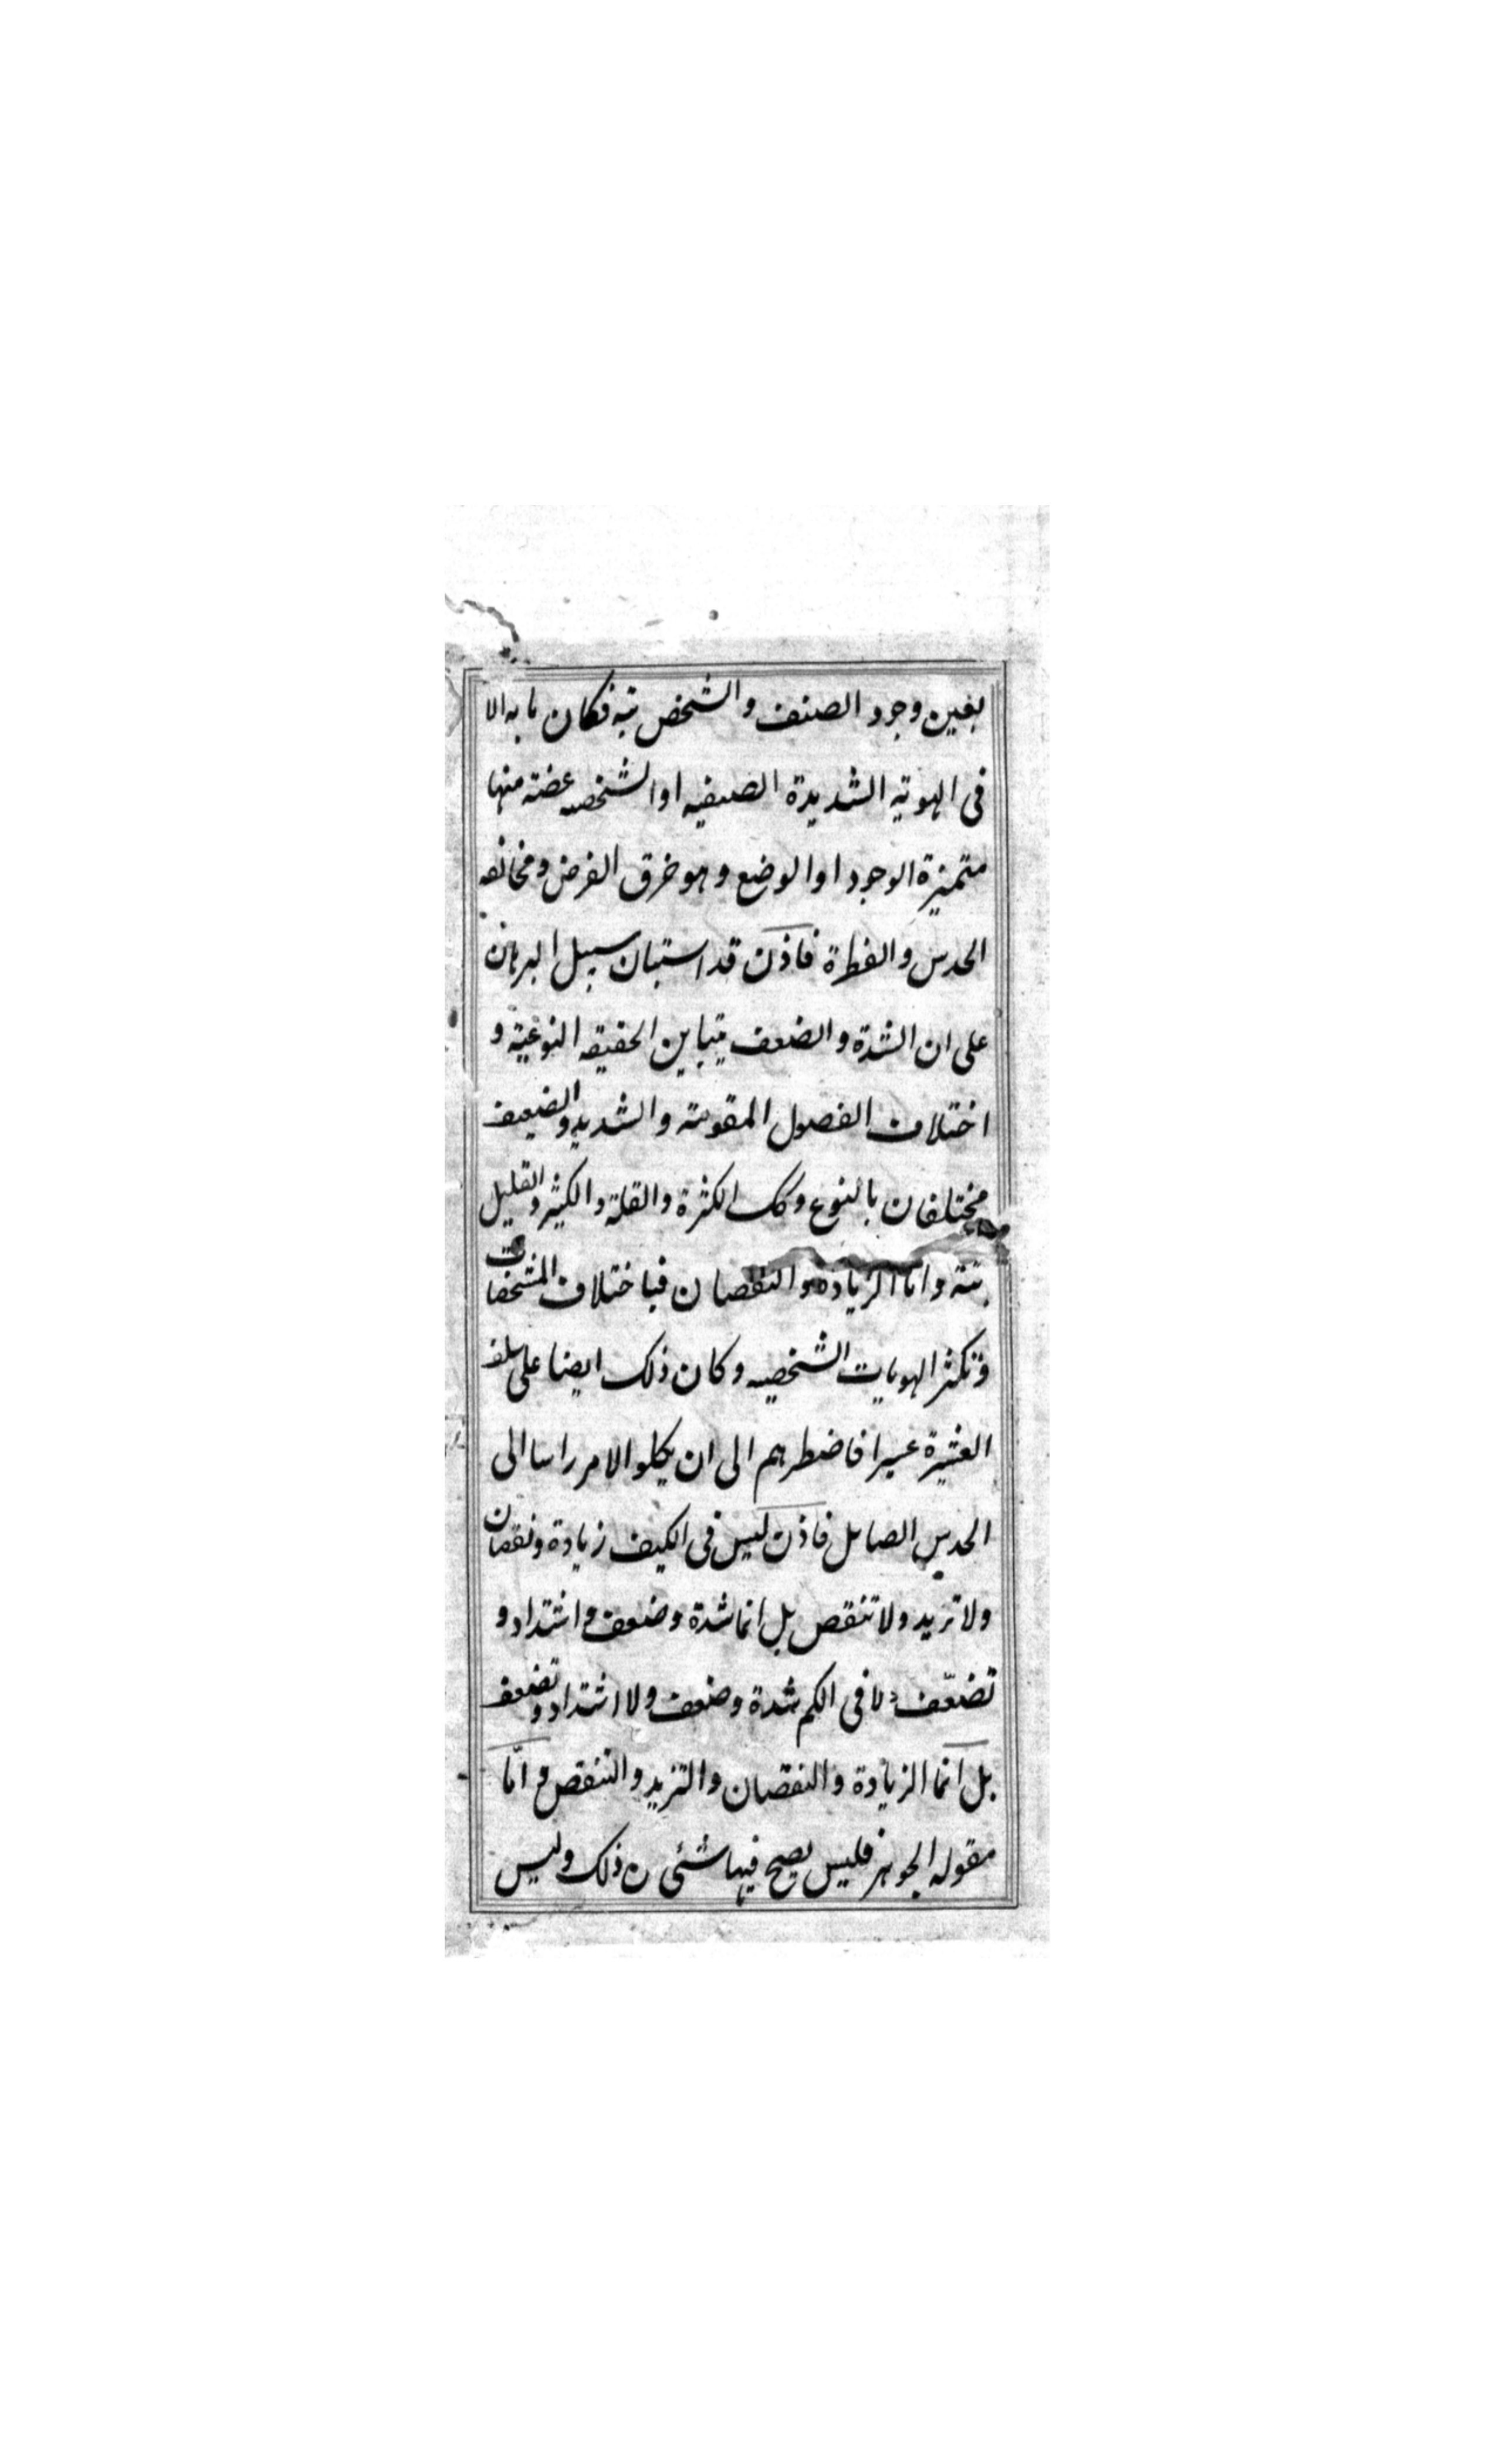 بعين وجود الصنف والشخص بتة فكان ما به الا
فى الهوية الشديدة الصنفيه او الشخصيه عضة منها
متميزة الوجود او الوضع وهو خرق الفرض ومخالفه
الحدس والفطرة فاذن قد استبان سبيل البرهان
على ان الشدة والضعف بتباين الحقيقه النوعية و
اختلاف الفصول المقومة والشديد والضعيف
مختلفان بالنوع وكك الكثرة والقلة والكثير والقليل
بتة واما الزيادة والنقصان فباختلاف المشخصات
وتكثر الهويات الشخصيه وكان ذلك ايضا على سلف
العشيرة عسيرا فاضطرهم الى ان يكلوا الامر راسا الى
الحدس الصائل فاذن ليس فى الكيف زيادة ونقصان
ولا تزيد ولا تنقص بل انما شدة وضعف واشتداد و
تضعّف ولا فى الكم شدة وضعف ولا اشتداد وتضعف
بل انما الزيادة والنقصان والتزيد والتنقص وامّا
مقوله الجوهر فليس يصح فيها شئى من ذلك وليس